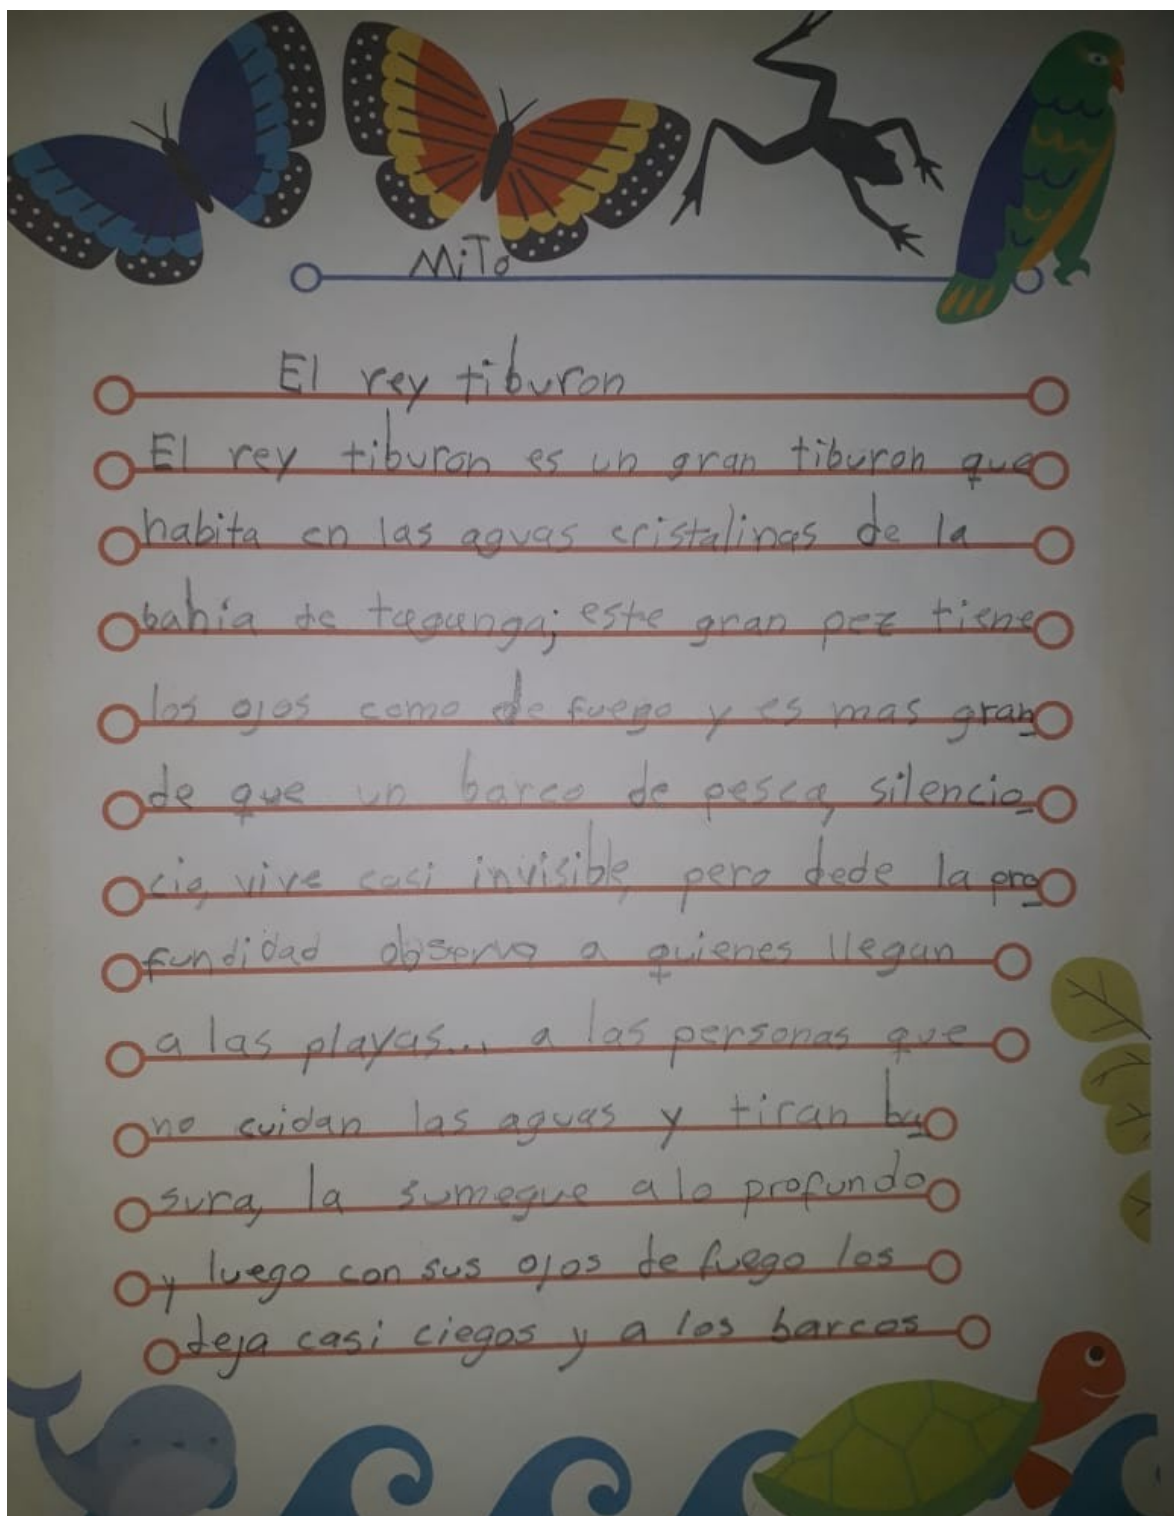 MiTo
El rey tiburon
El rey tiburon es un gran tiburon que
habita en las aguas cristalinas de la
bahía de taganga; este gran pez tiene
los ojos como de fuego y es mas gran
de que un barco de pesca, silencio
cio, vive casi invisible, pero dede la pro
fundidad observa a quienes llegan
a las playas... a las personas que
no cuidan las aguas y tiran ba
sura, la sumegue a lo profundo
y luego con sus ojos de fuego los
deja casi ciegos y a los barcos